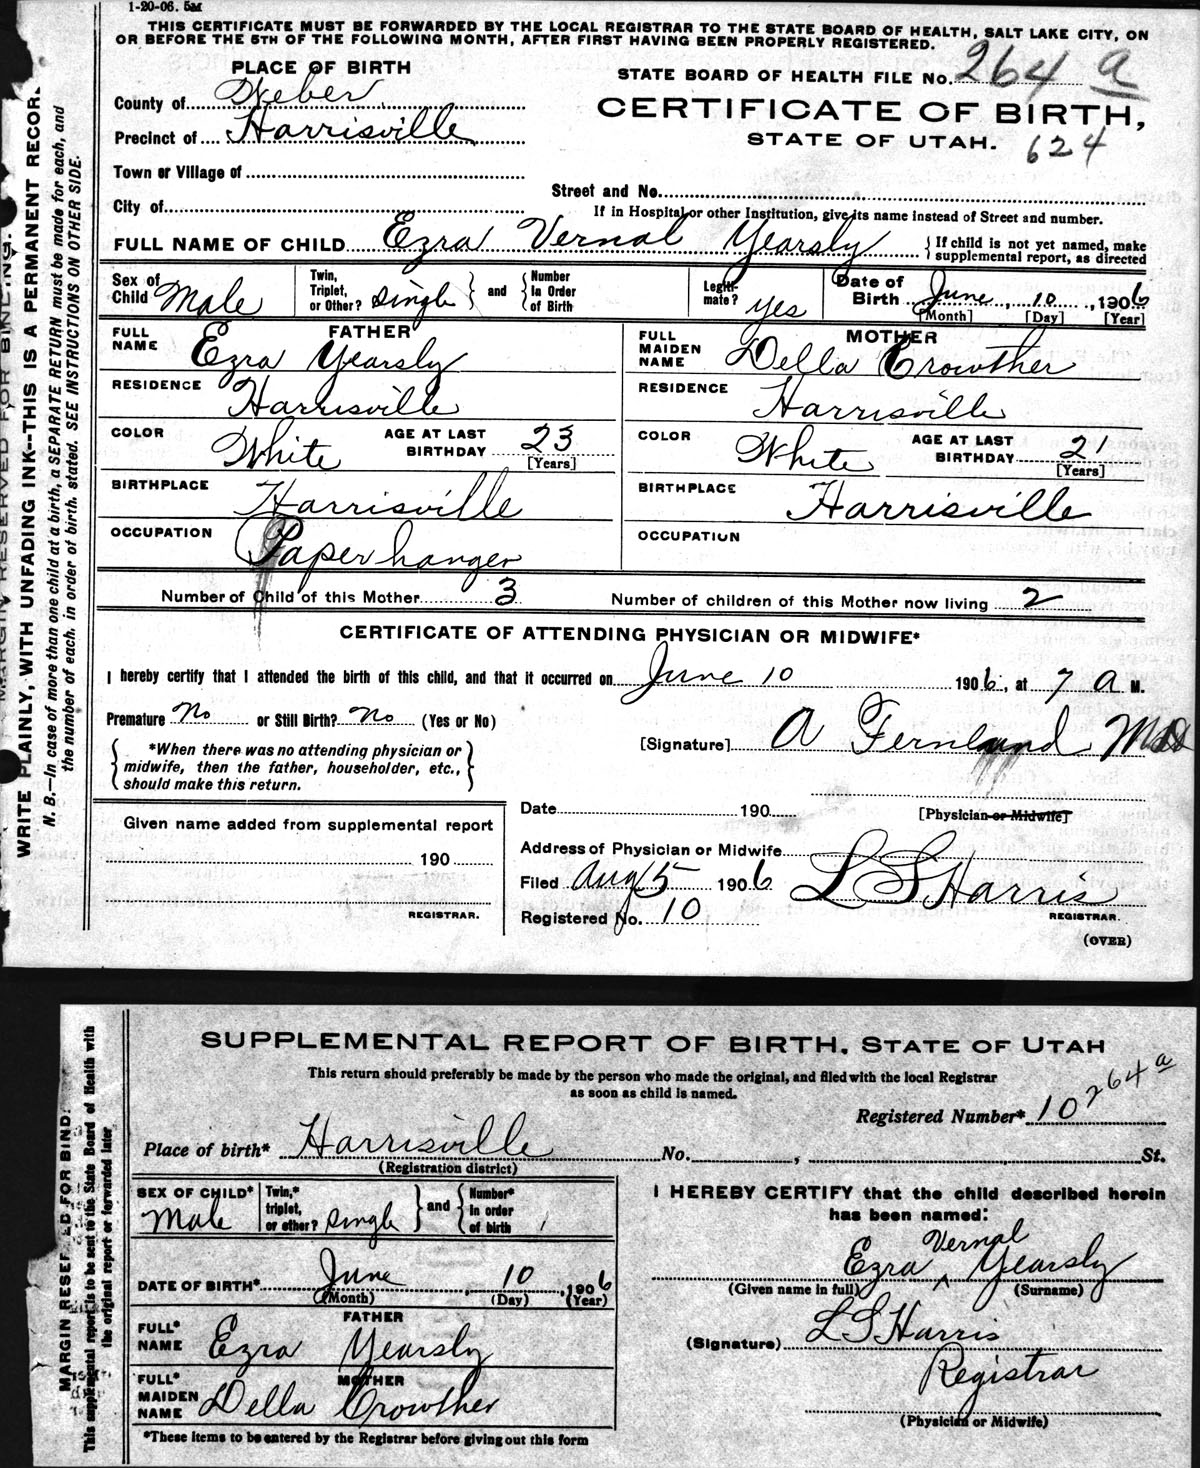 1-20-06. 5M
THIS CERTIFICATE MUST BE FORWARDED BY THE LOCAL REGISTRAR TO THE STATE BOARD OF HEALTH, SALT LAKE CITY, ON
OR BEFORE THE 5TH OF THE FOLLOWING MONTH, AFTER FIRST HAVING BEEN PROPERLY REGISTERED.
PLACE OF BIRTH
STATE BOARD OF HEALTH FILE No. 264 a
County of Weber
CERTIFICATE OF BIRTH,
Precinct of Harrisville
STATE OF UTAH. 624
Town or Village of
Street and No.
City of
If in Hospital or other Institution, give its name instead of Street and number.
FULL NAME OF CHILD Ezra Vernal Yearsly { If child is not yet named, make supplemental report, as directed
Sex of Child Male Twin, Triplet, or Other? Single } and { Number In Order of Birth Legiti-mate? yes Date of Birth June, 10, 1906
[Month] [Day] [Year]
FATHER MOTHER
FULL NAME Ezra Yearsly FULL MAIDEN NAME Della Crowther
RESIDENCE Harrisville RESIDENCE Harrisville
COLOR White AGE AT LAST BIRTHDAY 23 [Years] COLOR White AGE AT LAST BIRTHDAY 21 [Years]
BIRTHPLACE Harrisville BIRTHPLACE Harrisville
OCCUPATION Paper hanger OCCUPATION
Number of Child of this Mother 3 Number of children of this Mother now living 2
CERTIFICATE OF ATTENDING PHYSICIAN OR MIDWIFE*
I hereby certify that I attended the birth of this child, and that it occurred on June 10 1906, at 7 A M.
Premature No or Still Birth? No (Yes or No)
[Signature] A Fernlund MD
{ *When there was no attending physician or
midwife, then the father, householder, etc.,
should make this return. }
Date 190 [Physician or Midwife]
Given name added from supplemental report
190
REGISTRAR.
Address of Physician or Midwife
Filed Aug 5 1906 L S Harris
Registered No. 10 REGISTRAR.
(OVER)
MARGIN RESERVED FOR BINDING.
WRITE PLAINLY, WITH UNFADING INK--THIS IS A PERMANENT RECORD
N. B.—In case of more than one child at a birth, a SEPARATE RETURN must be made for each, and
the number of each, in order of birth, stated. SEE INSTRUCTIONS ON OTHER SIDE.
SUPPLEMENTAL REPORT OF BIRTH, STATE OF UTAH
This return should preferably be made by the person who made the original, and filed with the local Registrar
as soon as child is named.
Registered Number* 10 264 a
Place of birth* Harrisville No. , St.
(Registration district)
SEX OF CHILD* Male Twin,* triplet, or other? Single } and { Number* in order of birth 1
I HEREBY CERTIFY that the child described herein
has been named:
Ezra ^ Vernal Yearsly
(Given name in full) (Surname)
DATE OF BIRTH* June, 10, 1906
(Month) (Day) (Year)
FATHER
FULL* NAME Ezra Yearsly
(Signature) L S Harris
Registrar
(Physician or Midwife)
MOTHER
FULL* MAIDEN NAME Della Crowther
*These items to be entered by the Registrar before giving out this form
MARGIN RESERVED FOR BIND
This supplemental report is to be sent to the State Board of Health with
the original report or forwarded later